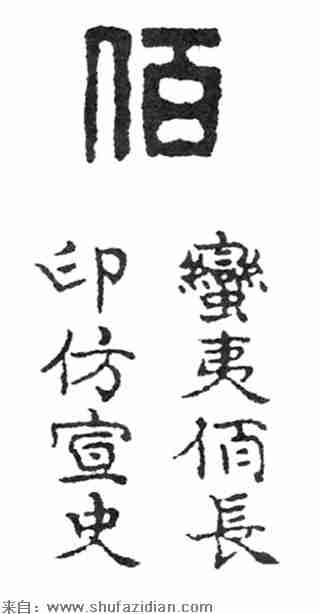 佰
蠻夷佰長
印仿宣史
来自：www.shufazidian.com